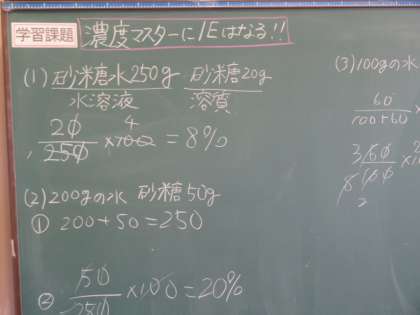 学習課題 濃度マスターに1Eはなる!!
(1) 砂糖水250g 砂糖20g
水溶液 溶質
20/250 ×100 4 = 8%
(2) 200gの水 砂糖50g
① 200+50=250
② 50/250 ×100 = 20%
(3) 100gの水
60/100+60